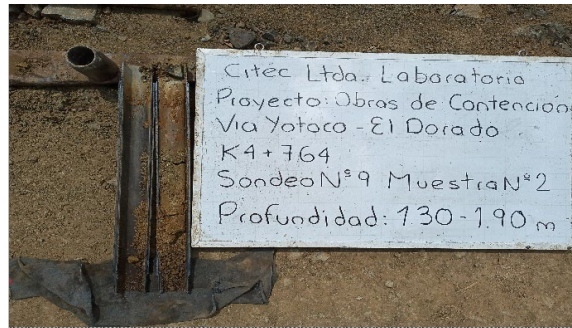 Citec Ltda. Laboratorio
Proyecto: Obras de Contención
Via Yotoco - El Dorado
K4+764
Sondeo N°9 Muestra N°2
Profundidad: 130-1.90 m